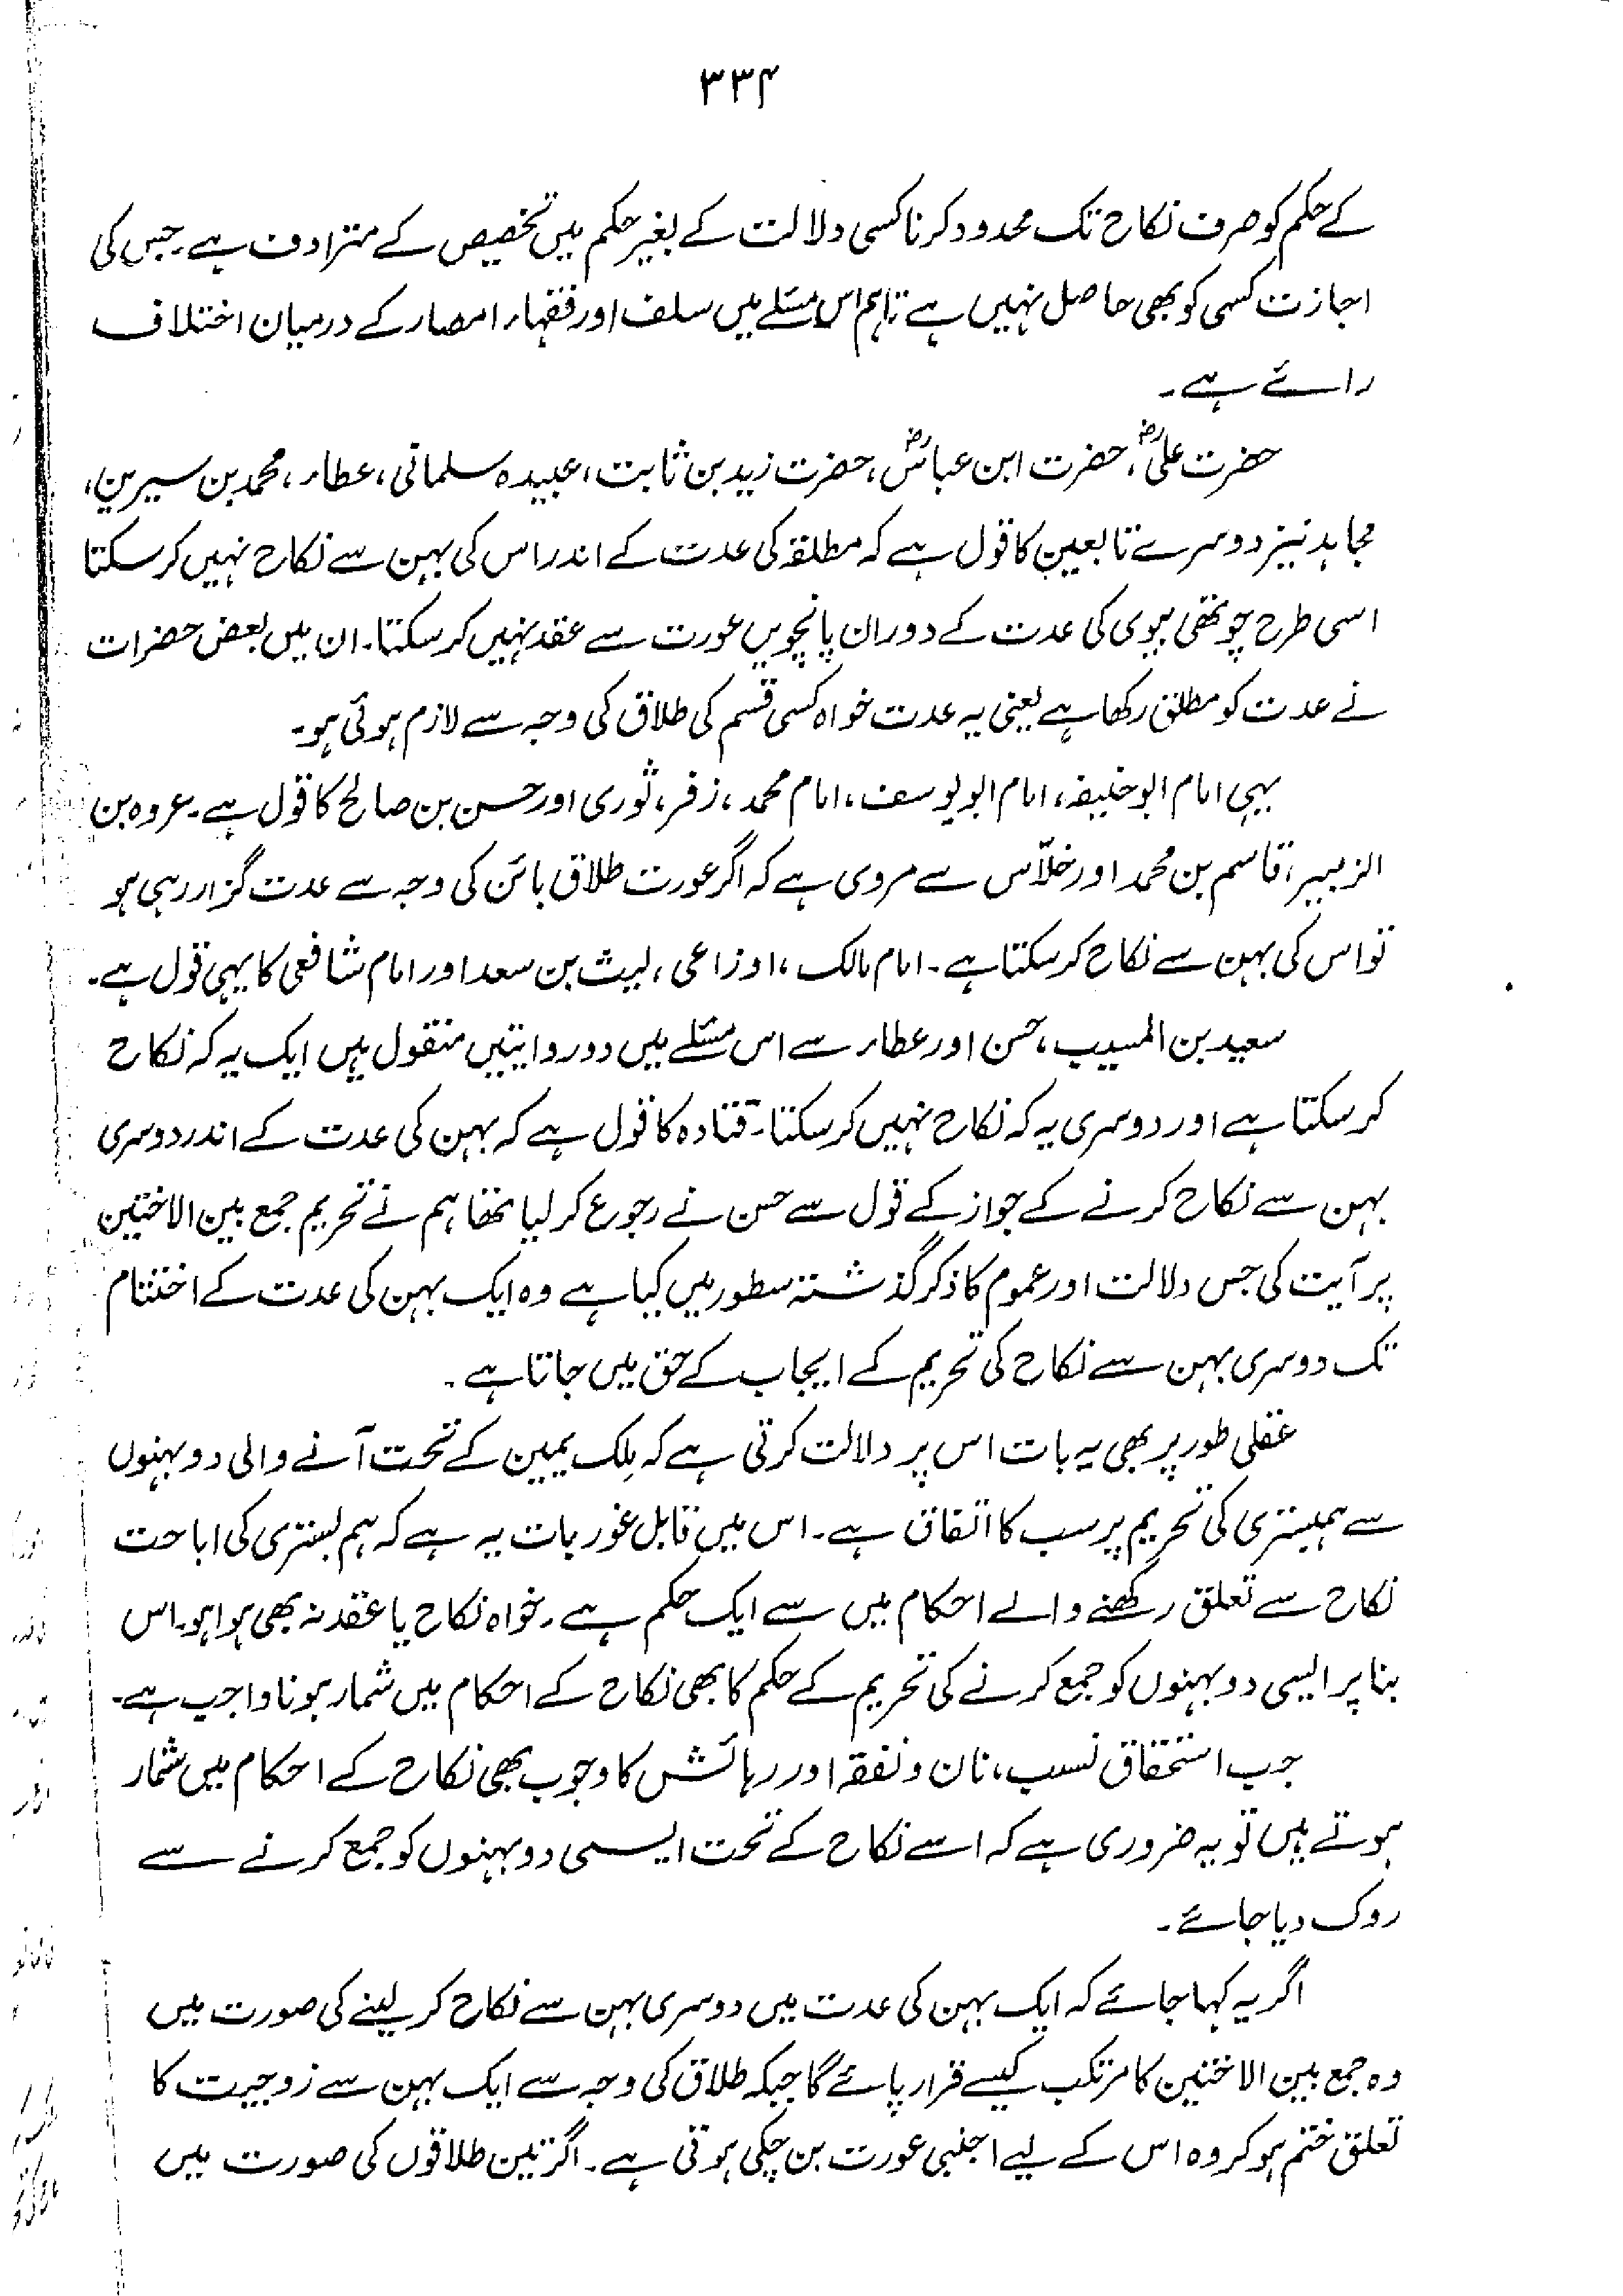 ۳۳۴
کے حکم کو صرف نکاح تک محدود کرنا کسی دلالت کے بغیر حکم میں تخصیص کے مترادف ہے۔ جس کی
اجازت کسی کو بھی حاصل نہیں ہے تاہم اس مسئلے میں سلف اور فقہاء امصار کے درمیان اختلاف
رائے ہے۔
حضرت علیؓ، حضرت ابن عباسؓ، حضرت زید بن ثابت، عبیدہ سلمانی، عطاء، محمد بن سیرین،
مجاہد نیز دوسرے تابعین کا قول ہے کہ مطلقہ کی عدت کے اندر اس کی بہن سے نکاح نہیں کر سکتا
اسی طرح چوتھی بیوی کی عدت کے دوران پانچویں عورت سے عقد نہیں کر سکتا۔ ان میں بعض حضرات
نے عدت کو مطلق رکھا ہے یعنی یہ عدت خواہ کسی قسم کی طلاق کی وجہ سے لازم ہوئی ہو۔
یہی امام ابو حنیفہ، امام ابو یوسف، امام محمد، زفر، ثوری اور حسن بن صالح کا قول ہے۔ عروہ بن
الزبیر، قاسم بن محمد اور خلّاس سے مروی ہے کہ اگر عورت طلاق بائن کی وجہ سے عدت گزار رہی ہو
تو اس کی بہن سے نکاح کر سکتا ہے۔ امام مالک، اوزاعی، لیث بن سعد اور امام شافعی کا یہی قول ہے۔
سعید بن المسیب، حسن اور عطاء سے اس مسئلے میں دو روایتیں منقول ہیں ایک یہ کہ نکاح
کر سکتا ہے اور دوسری یہ کہ نکاح نہیں کر سکتا۔ قتادہ کا قول ہے کہ بہن کی عدت کے اندر دوسری
بہن سے نکاح کرنے کے جواز کے قول سے حسن نے رجوع کر لیا تھا ہم نے تحریم جمع بین الاختین
پر آیت کی جس دلالت اور عموم کا ذکر گذشتہ سطور میں کیا ہے وہ ایک بہن کی عدت کے اختتام
تک دوسری بہن سے نکاح کی تحریم کے ایجاب کے حق میں جاتا ہے۔
عقلی طور پر بھی یہ بات اس پر دلالت کرتی ہے کہ مِلک یمین کے تحت آنے والی دو بہنوں
سے ہمبستری کی تحریم پر سب کا اتفاق ہے۔ اس میں قابل غور بات یہ ہے کہ ہم بستری کی اباحت
نکاح سے تعلق رکھنے والے احکام میں سے ایک حکم ہے۔ خواہ نکاح یا عقد نہ بھی ہوا ہو۔ اس
بنا پر ایسی دو بہنوں کو جمع کرنے کی تحریم کے حکم کا بھی نکاح کے احکام میں شمار ہونا واجب ہے۔
جب استحقاق نسب، نان و نفقہ اور رہائش کا وجوب بھی نکاح کے احکام میں شمار
ہوتے ہیں تو یہ ضروری ہے کہ اسے نکاح کے تحت ایسی دو بہنوں کو جمع کرنے سے
روک دیا جائے۔
اگر یہ کہا جائے کہ ایک بہن کی عدت میں دوسری بہن سے نکاح کر لینے کی صورت میں
وہ جمع بین الاختین کا مرتکب کیسے قرار پائے گا جبکہ طلاق کی وجہ سے ایک بہن سے زوجیت کا
تعلق ختم ہو کر وہ اس کے لیے اجنبی عورت بن چکی ہوتی ہے۔ اگر تین طلاقوں کی صورت میں